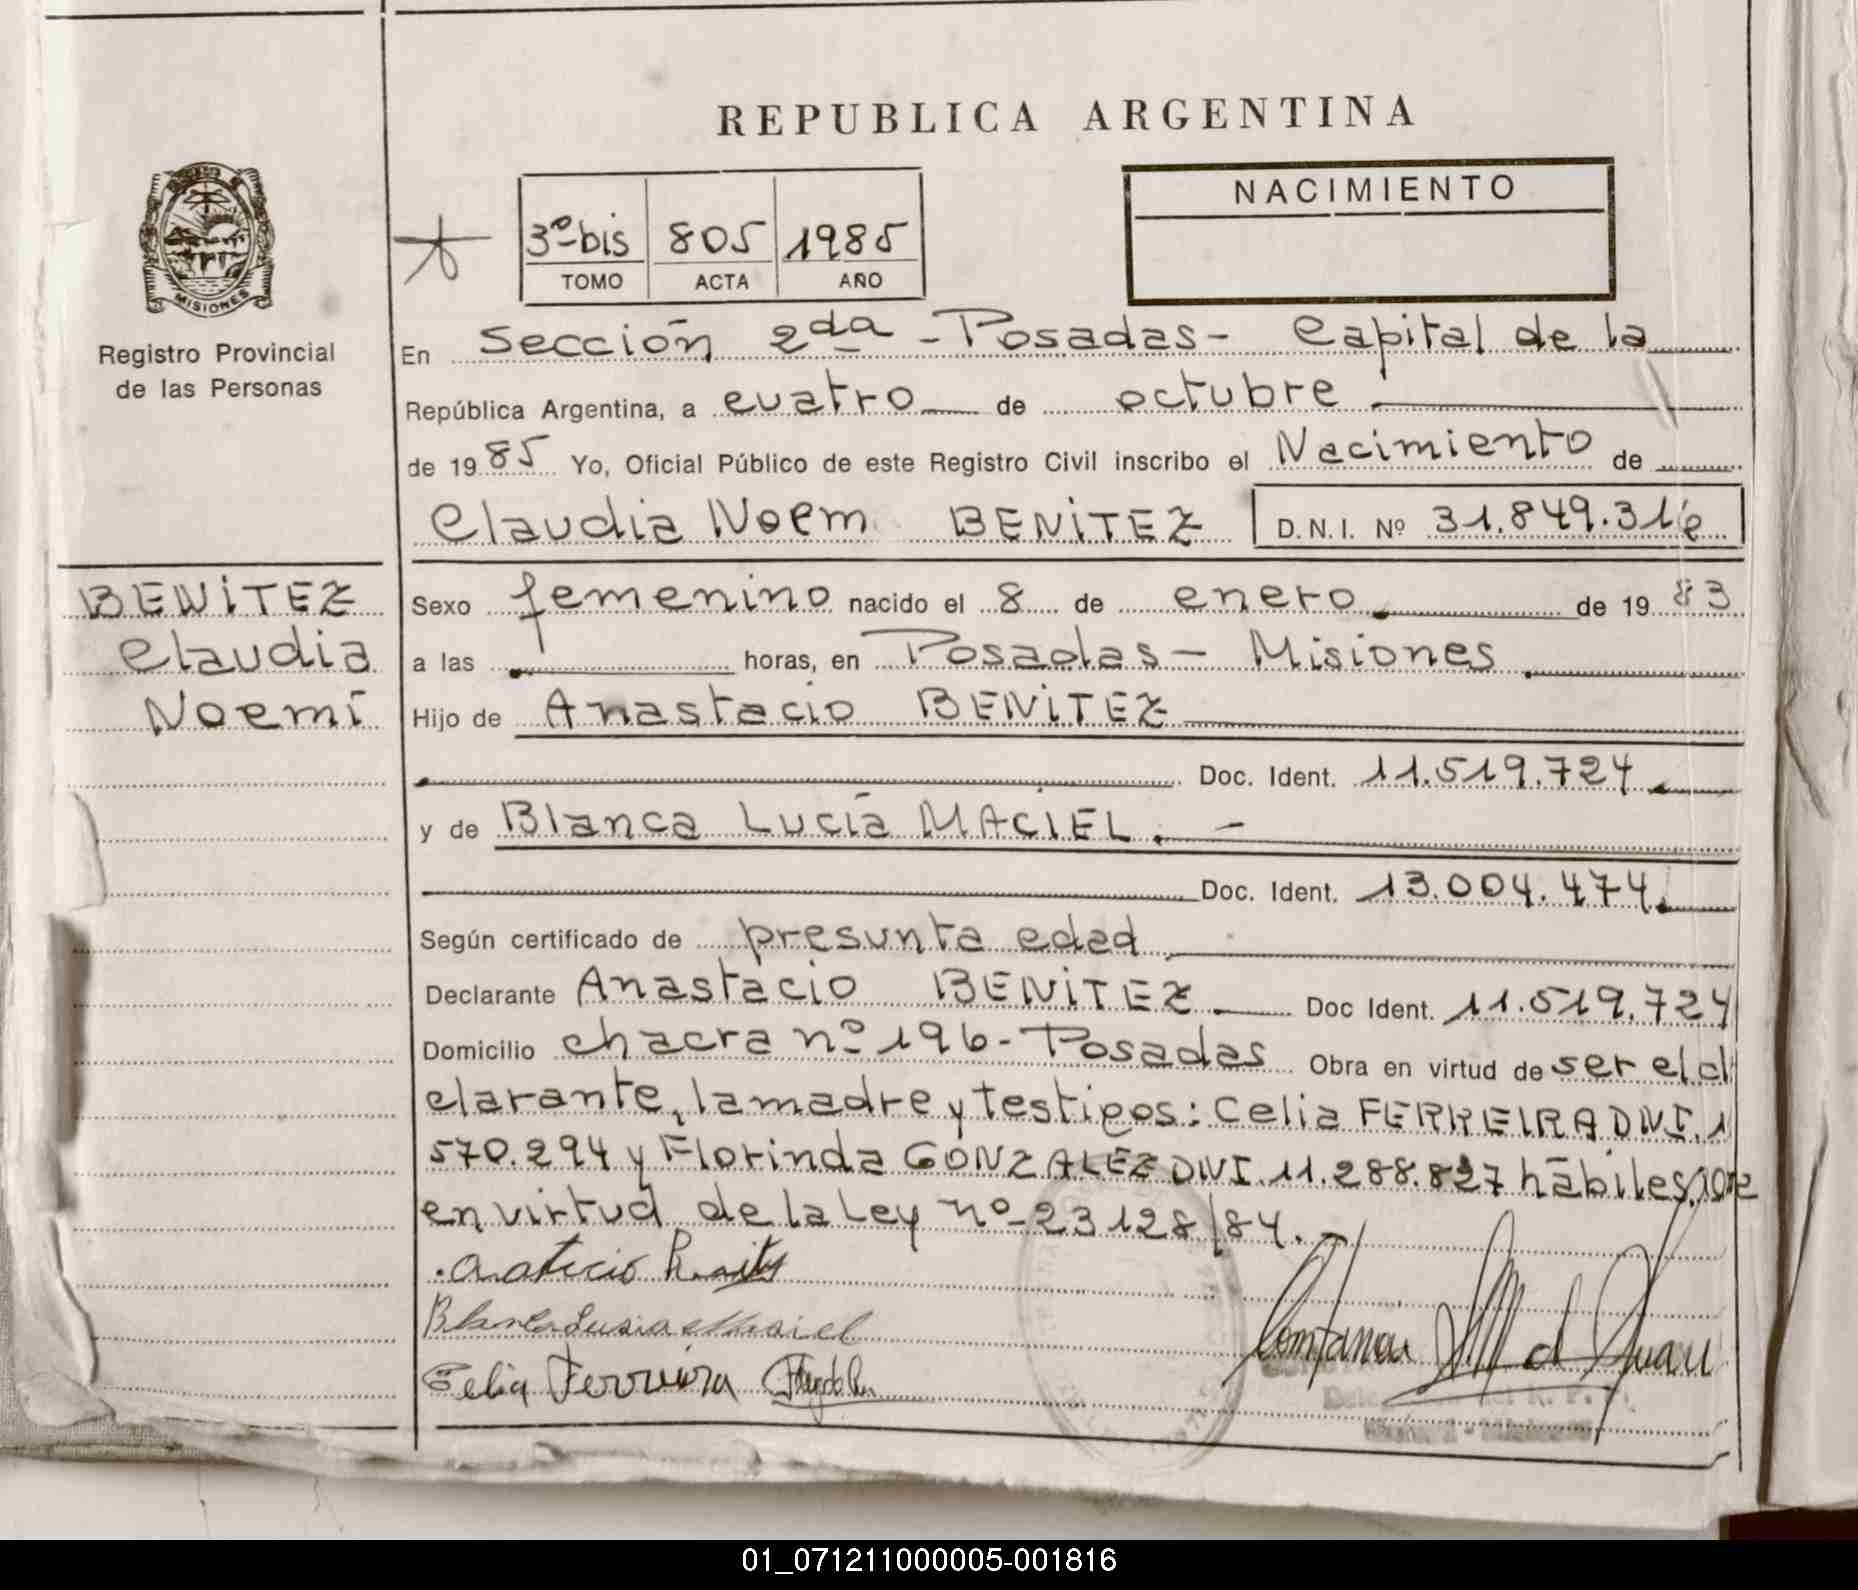 REPUBLICA ARGENTINA
MISIONES
Registro Provincial
de las Personas
3º-bis 805 1985
TOMO ACTA AÑO
NACIMIENTO
En Sección 2da - Posadas - Capital de la
República Argentina, a cuatro de octubre
de 1985 Yo, Oficial Público de este Registro Civil inscribo el Nacimiento de
Claudia Noem BENITEZ D.N.I. Nº 31.849.316
BENITEZ
Claudia
Noemí
Sexo femenino nacido el 8 de enero de 1983
a las horas, en Posadas - Misiones
Hijo de Anastacio BENITEZ
Doc. Ident. 11.519.724
y de Blanca Lucía MACIEL. -
Doc. Ident. 13.004.474.
Según certificado de presunta edad
Declarante Anastacio BENITEZ Doc Ident. 11.519.724
Domicilio chacra nº 196 - Posadas Obra en virtud de ser el d
clarante, la madre y testigos: Celia FERREIRA DNI. 1
570.294 y Florinda GONZALEZ DNI. 11.288.827 hábiles,
en virtud de la Ley nº 23128/84. -
Blanca Lusia Masiel
Celia Ferreira
01_071211000005-001816